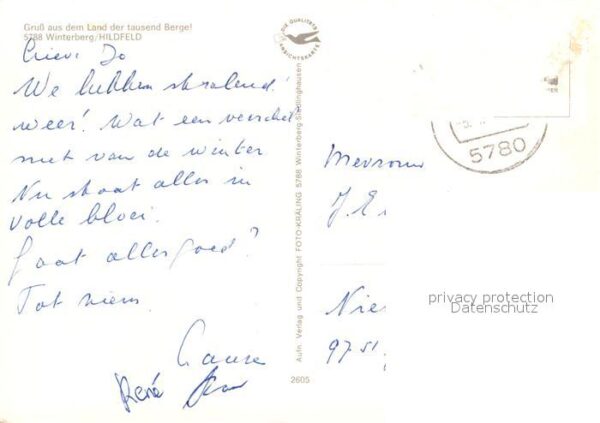 Gruß aus dem Land der tausend Berge!
5788 Winterberg/HILDFELD
DIE QUALITÄTS
ANSICHTSKARTE
Lieve Jo
We hebben stralend
weer! Wat een verschil
met van de winter
Nu staat alles in
volle bloei.
Gaat alles goed?
Tot ziens
René
Aufn. Verlag und Copyright FOTO-KRÄLING 5788 Winterberg-Siedlinghausen
2605
5780
Mevrouw
J. E.
Nie
9751
privacy protection
Datenschutz